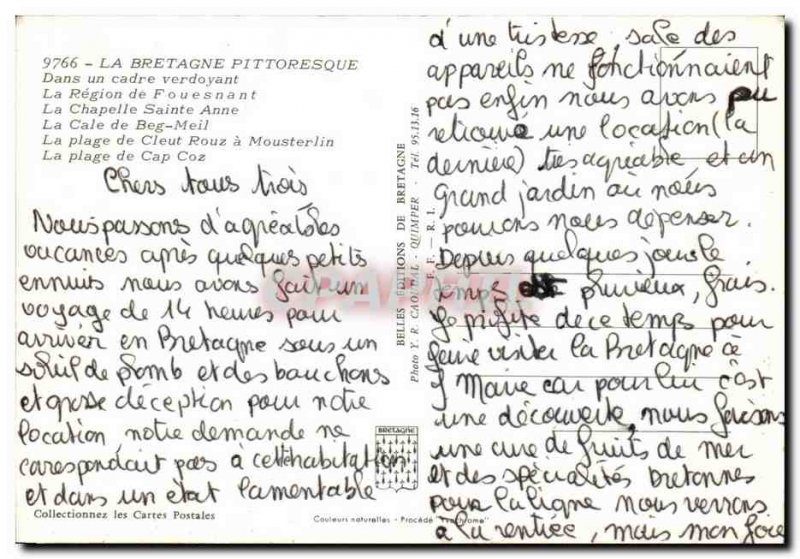 9766 - LA BRETAGNE PITTORESQUE
Dans un cadre verdoyant
La Région de Fouesnant
La Chapelle Sainte Anne
La Cale de Beg-Meil
La plage de Cleut Rouz à Mousterlin
La plage de Cap Coz
Chers tous trois
Nous passons d'agréables
vacances après quelques petits
ennuits nous avons fait un
voyage de 14 heures pour
arriver en Bretagne sous un
soleil de plomb et des bouchons
et grosse déception pour notre
location notre demande ne
correspondait pas à cette habitation
et dans un état lamentable
Collectionnez les Cartes Postales
BELLES EDITIONS DE BRETAGNE
Photo Y. R. CAOUDAL - QUIMPER - Tél. 95.13.16
F. F. - R. I.
BRETAGNE
Couleurs naturelles - Procédé
d'une tristesse sale des
appareils ne fonctionnaient
pas enfin nous avons pu
retrouvé une location (la
dernière) très agréable et un
grand jardin où nous
pouvons nous dépenser.
Depuis quelques jours le
temps est pluvieux, frais.
Je profite de ce temps pour
faire visiter la Bretagne à
J Marie car pour lui c'est
une découverte, nous faisons
une cure de fruits de mer
et des spécialités bretonnes
pour la ligne nous verrons
à la rentrée, mais mon foie